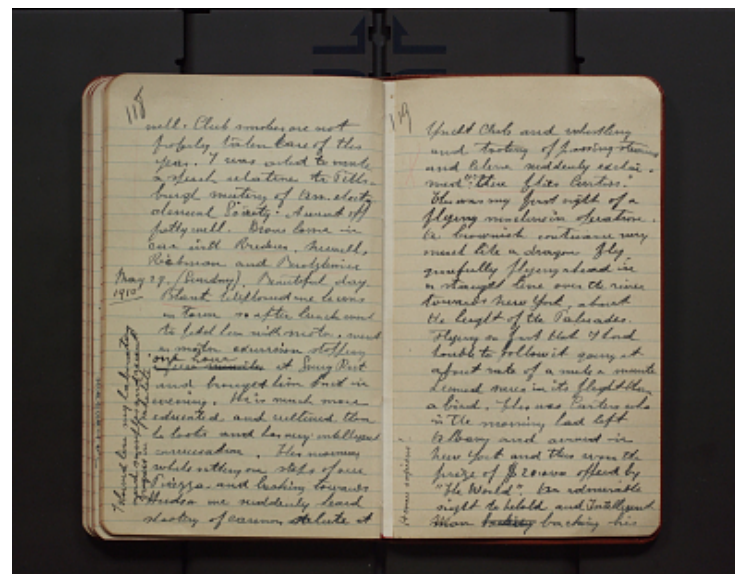 118
well. Club smokes are not
properly taken care of this
year. I was asked to make
a speech relative to Pitts-
burgh meeting of Am. electro
chemical Society. It went off
pretty well. Drove home in
car with
Hickman and
May 29. (Sunday). Beautiful day.
1910
Blank telephoned me he was
in town so after lunch went
to fetch him with motor, went
on motor excursion stopping
one hour
at Sunny Rest
and brought him back in
evening. He is much more
educated and cultured than
he looks and has very intelligent
conversation. This morning
while sitting on steps of our
Piazza and looking towards
Hudson we suddenly heard
shooting of cannon salute at
I showed him my laboratory
119
Yacht Club and whistling
and tooting of passing steamers
and Celine suddenly exclai-
med: "there flies Curtiss."
This was my first sight of a
flying machine in operation.
A brownish contrivance very
much like a dragon fly
gracefully flying ahead in
a straight line over the river
towards New York, about
the height of the Palisades.
Flying so fast that I had
trouble to follow it going at
about rate of a mile a minute
Seemed surer in its flight than
a bird. This was Curtiss who
in the morning had left
Albany and arrived in
New York and thus won the
prize of $ 10000 offered by
"The World". An admirable
sight to behold and Intelligent
Man backing his